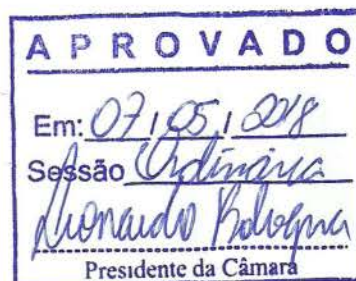 APROVADO
Em: 07/05/2018
Sessão Ordinária
Leonardo Bologna
Presidente da Câmara